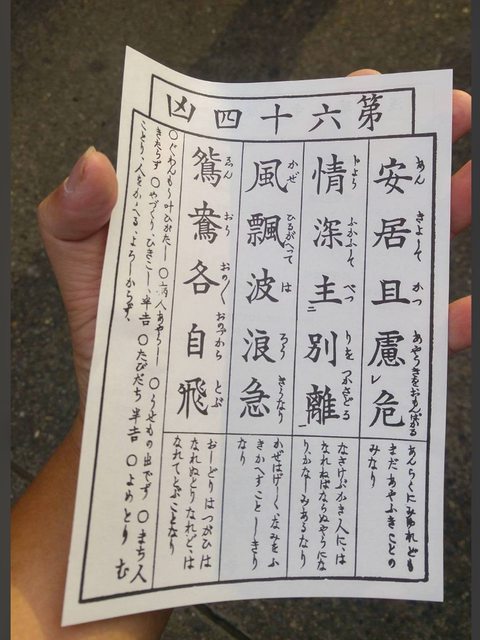 第六十四凶
安居且慮危
あん きよして かつ あやうきをおもんばかる
あんらくにみゆれども
まだあやふきことの
みなり
情深主別離
じよう ふかふして べつ りを つかさどる
なさけふかき人には
なれねばならぬやうにな
り、かなしみあるなり
風飄波浪急
かぜ ひるがへつて は ろう きうなり
かぜはげしく、なみをふ
きかへすこと しきり
なり
鴛鴦各自飛
ゑん おう おの〱 おのづから とぶ
おしどりはつがひは
なれぬとりなれど、は
なれてとぶことなり
〇ぐわんもう叶ひがたし 〇病人あやうし 〇うせもの出でず 〇まち人
きたらず 〇やづくり、ひきこし、半吉 〇たびだち半吉 〇よめとり む
ことり、人をかゝへる、よろしからず、